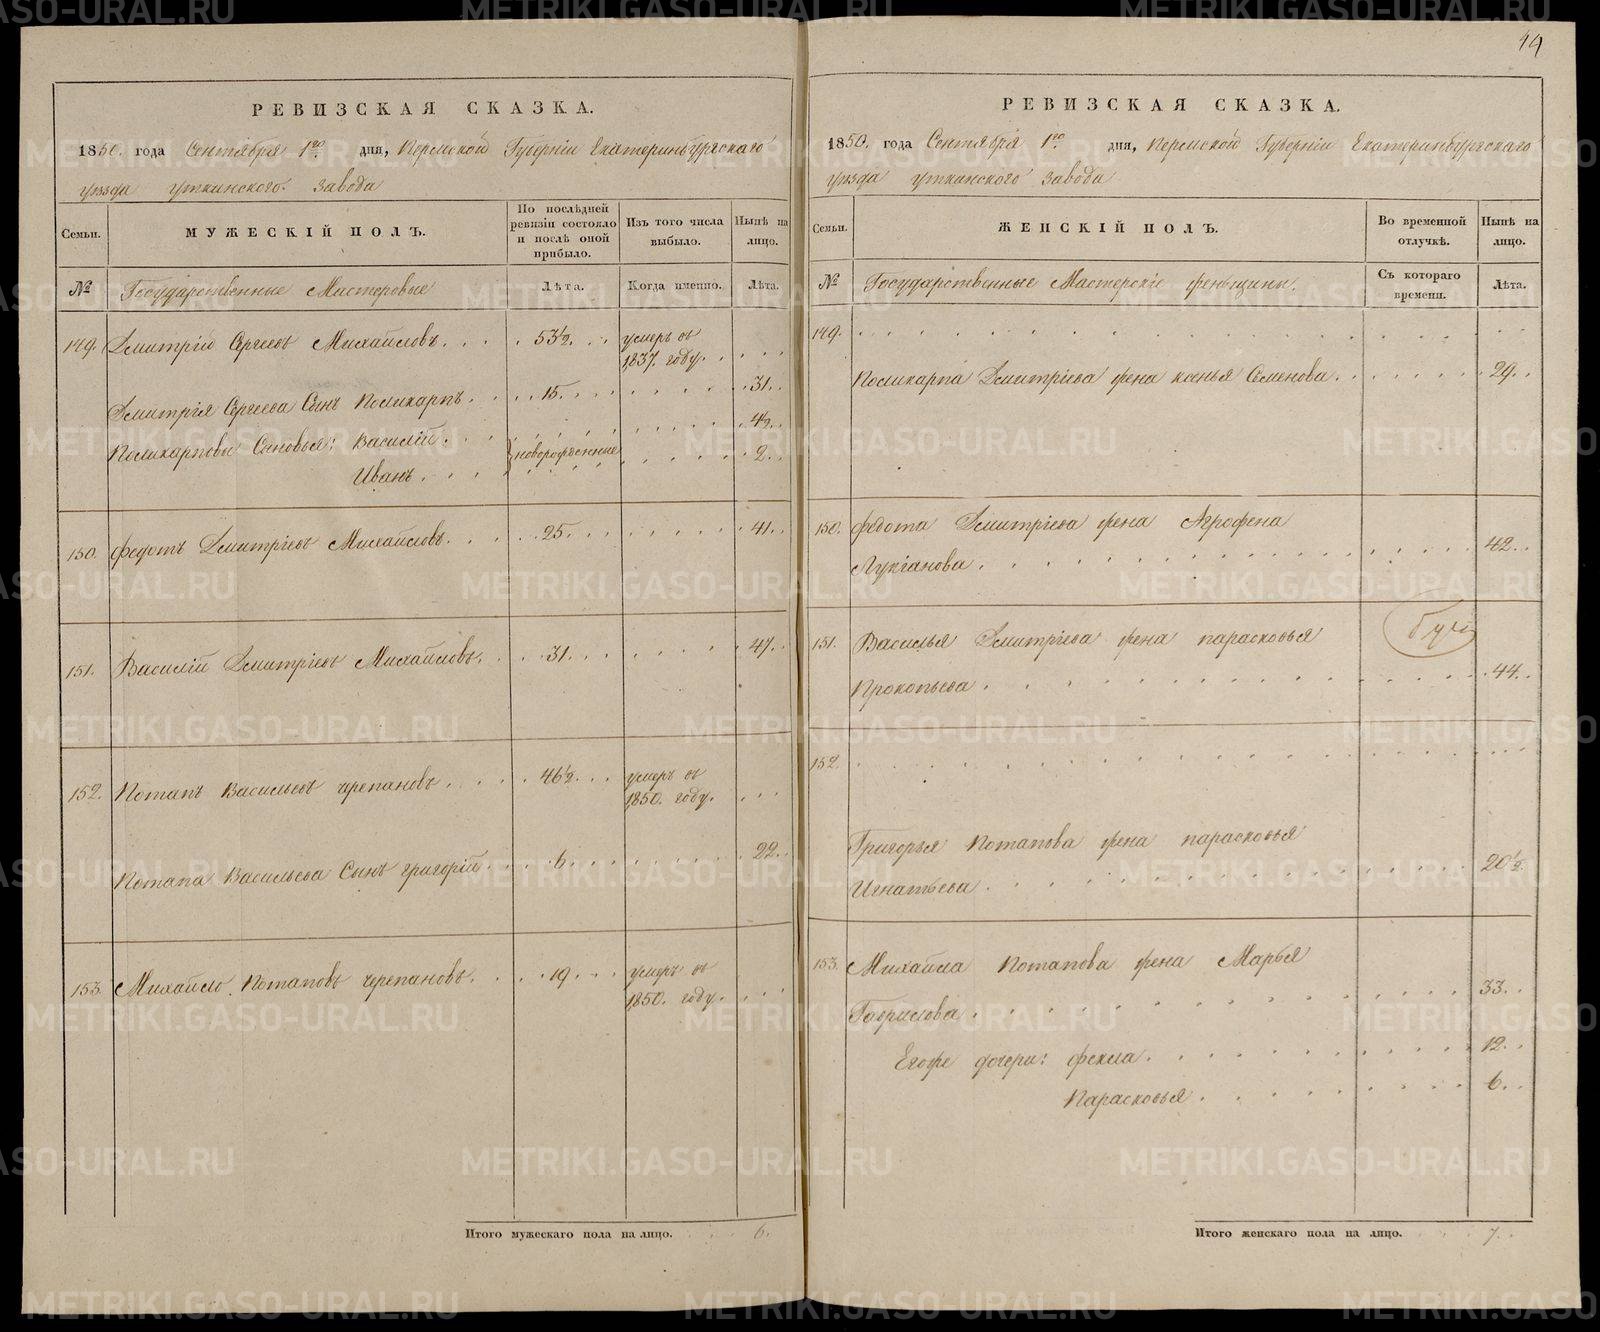 44
РЕВИЗСКАЯ СКАЗКА.
1850. года Сентября 1го. дня, Пермской Губернiи Екатеринбургскаго
уѣзда уткинского. завода
Семьи.
МУЖЕСКIЙ ПОЛЪ.
По послѣдней
ревизiи состояло
и послѣ оной
прибыло.
Изъ того числа
выбыло.
Нынѣ на
лицо.
№
Государственные Мастеровые
Лѣта.
Когда именно.
Лѣта.
149. Дмитрiй Сергеевъ Михайловъ. . . . 53½. . . умеръ въ
1837. году. . . . .
Дмитрiя Сергеева Сынъ Поликарпъ. . . . 15. . . . . . . . 31. .
Поликарповы Сыновья: Василiй. . . . . . . 4½. .
новорожденные
Иванъ. . . . . . . . . 2. .
150. Федотъ Дмитрiевъ Михайловъ. . . . . 25. . . . . . . . 41. .
151. Василiй Дмитрiевъ Михайловъ. . . 31. . . . . . . . 47. .
152. Потапъ Васильевъ черепановъ . . . . 46½. . . умеръ въ
1850. году. . . .
Потапа Васильева Сынъ григорiй. . . . 6. . . . . . . . 22. .
153. Михайло Потаповъ черепановъ. . . . 19. . . умеръ въ
1850. году. . . .
Итого мужескаго пола на лицо. . . . 6.
РЕВИЗСКАЯ СКАЗКА.
1850. года Сентября 1го. дня, Пермской Губернiи Екатеринбургскаго
уѣзда уткинского завода
Семьи.
ЖЕНСКIЙ ПОЛЪ.
Во временной
отлучкѣ.
Нынѣ на
лицо.
№
Государственные Мастерскiе женьщины.
Съ котораго
времени.
Лѣта.
149. . . . . . . . . . . . . .
Поликарпа Дмитрiева жена ксенья Семенова. . . . . . . . 29. .
150. федота Дмитрiева жена Агрофена
Лукiанова. . . . . . . . . . . . . 42. .
151. Василья Дмитрiева жена парасковья
Прокопьева . . . . . . . . . . . . 44. .
152. . . . . . . . . . . . . .
Григорья Потапова жена парасковья
Игнатьева. . . . . . . . . . . . . 20½.
153. Михайла Потапова жена Марья
Гаврилова. . . . . . . . . . . . . 33. .
Егоже дочери: фекла. . . . . . . . . . 12. .
Парасковья. . . . . . . . . 6. .
Итого женскаго пола на лицо. . . . 7.
METRIKI.GASO-URAL.RU